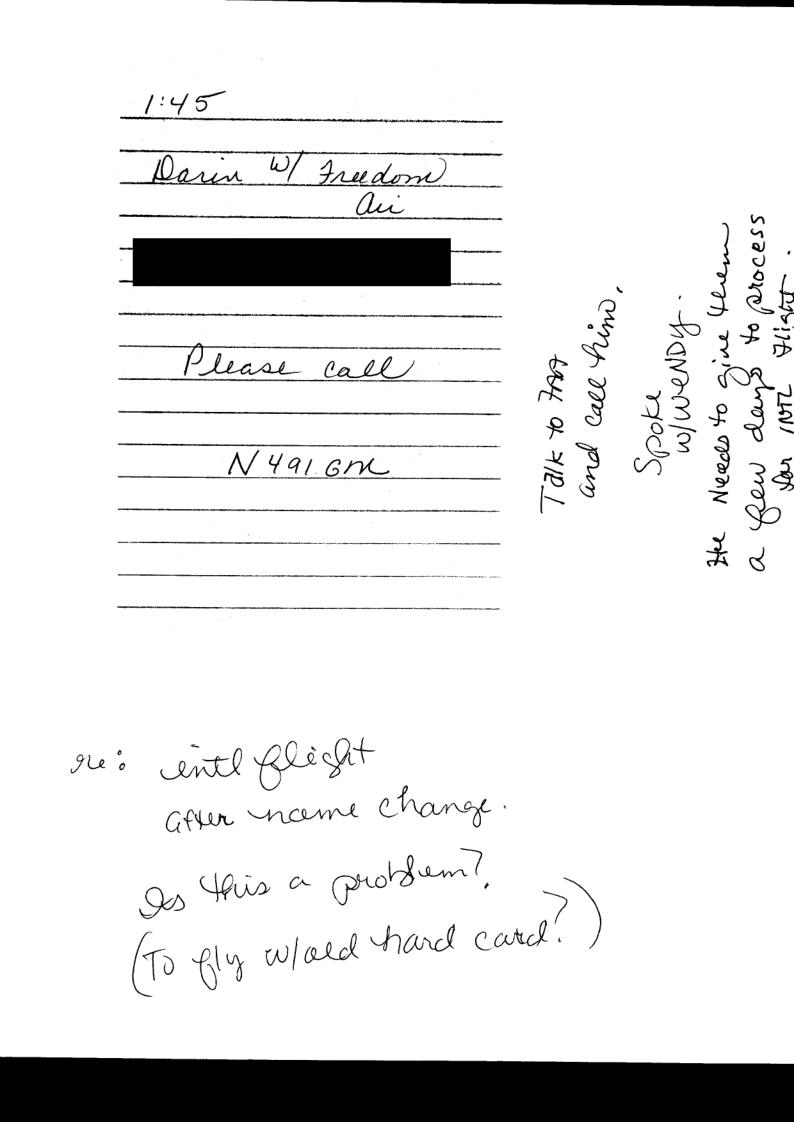 1:45
Darin w/ Freedom
Air
Please call
N491GM
Talk to
and call him.
Spoke
w/WENDY.
He Needs to give them
a few days to process
for INTL flight.
re: intl flight
after name change.
Is this a problem?
(To fly w/old hard card?)